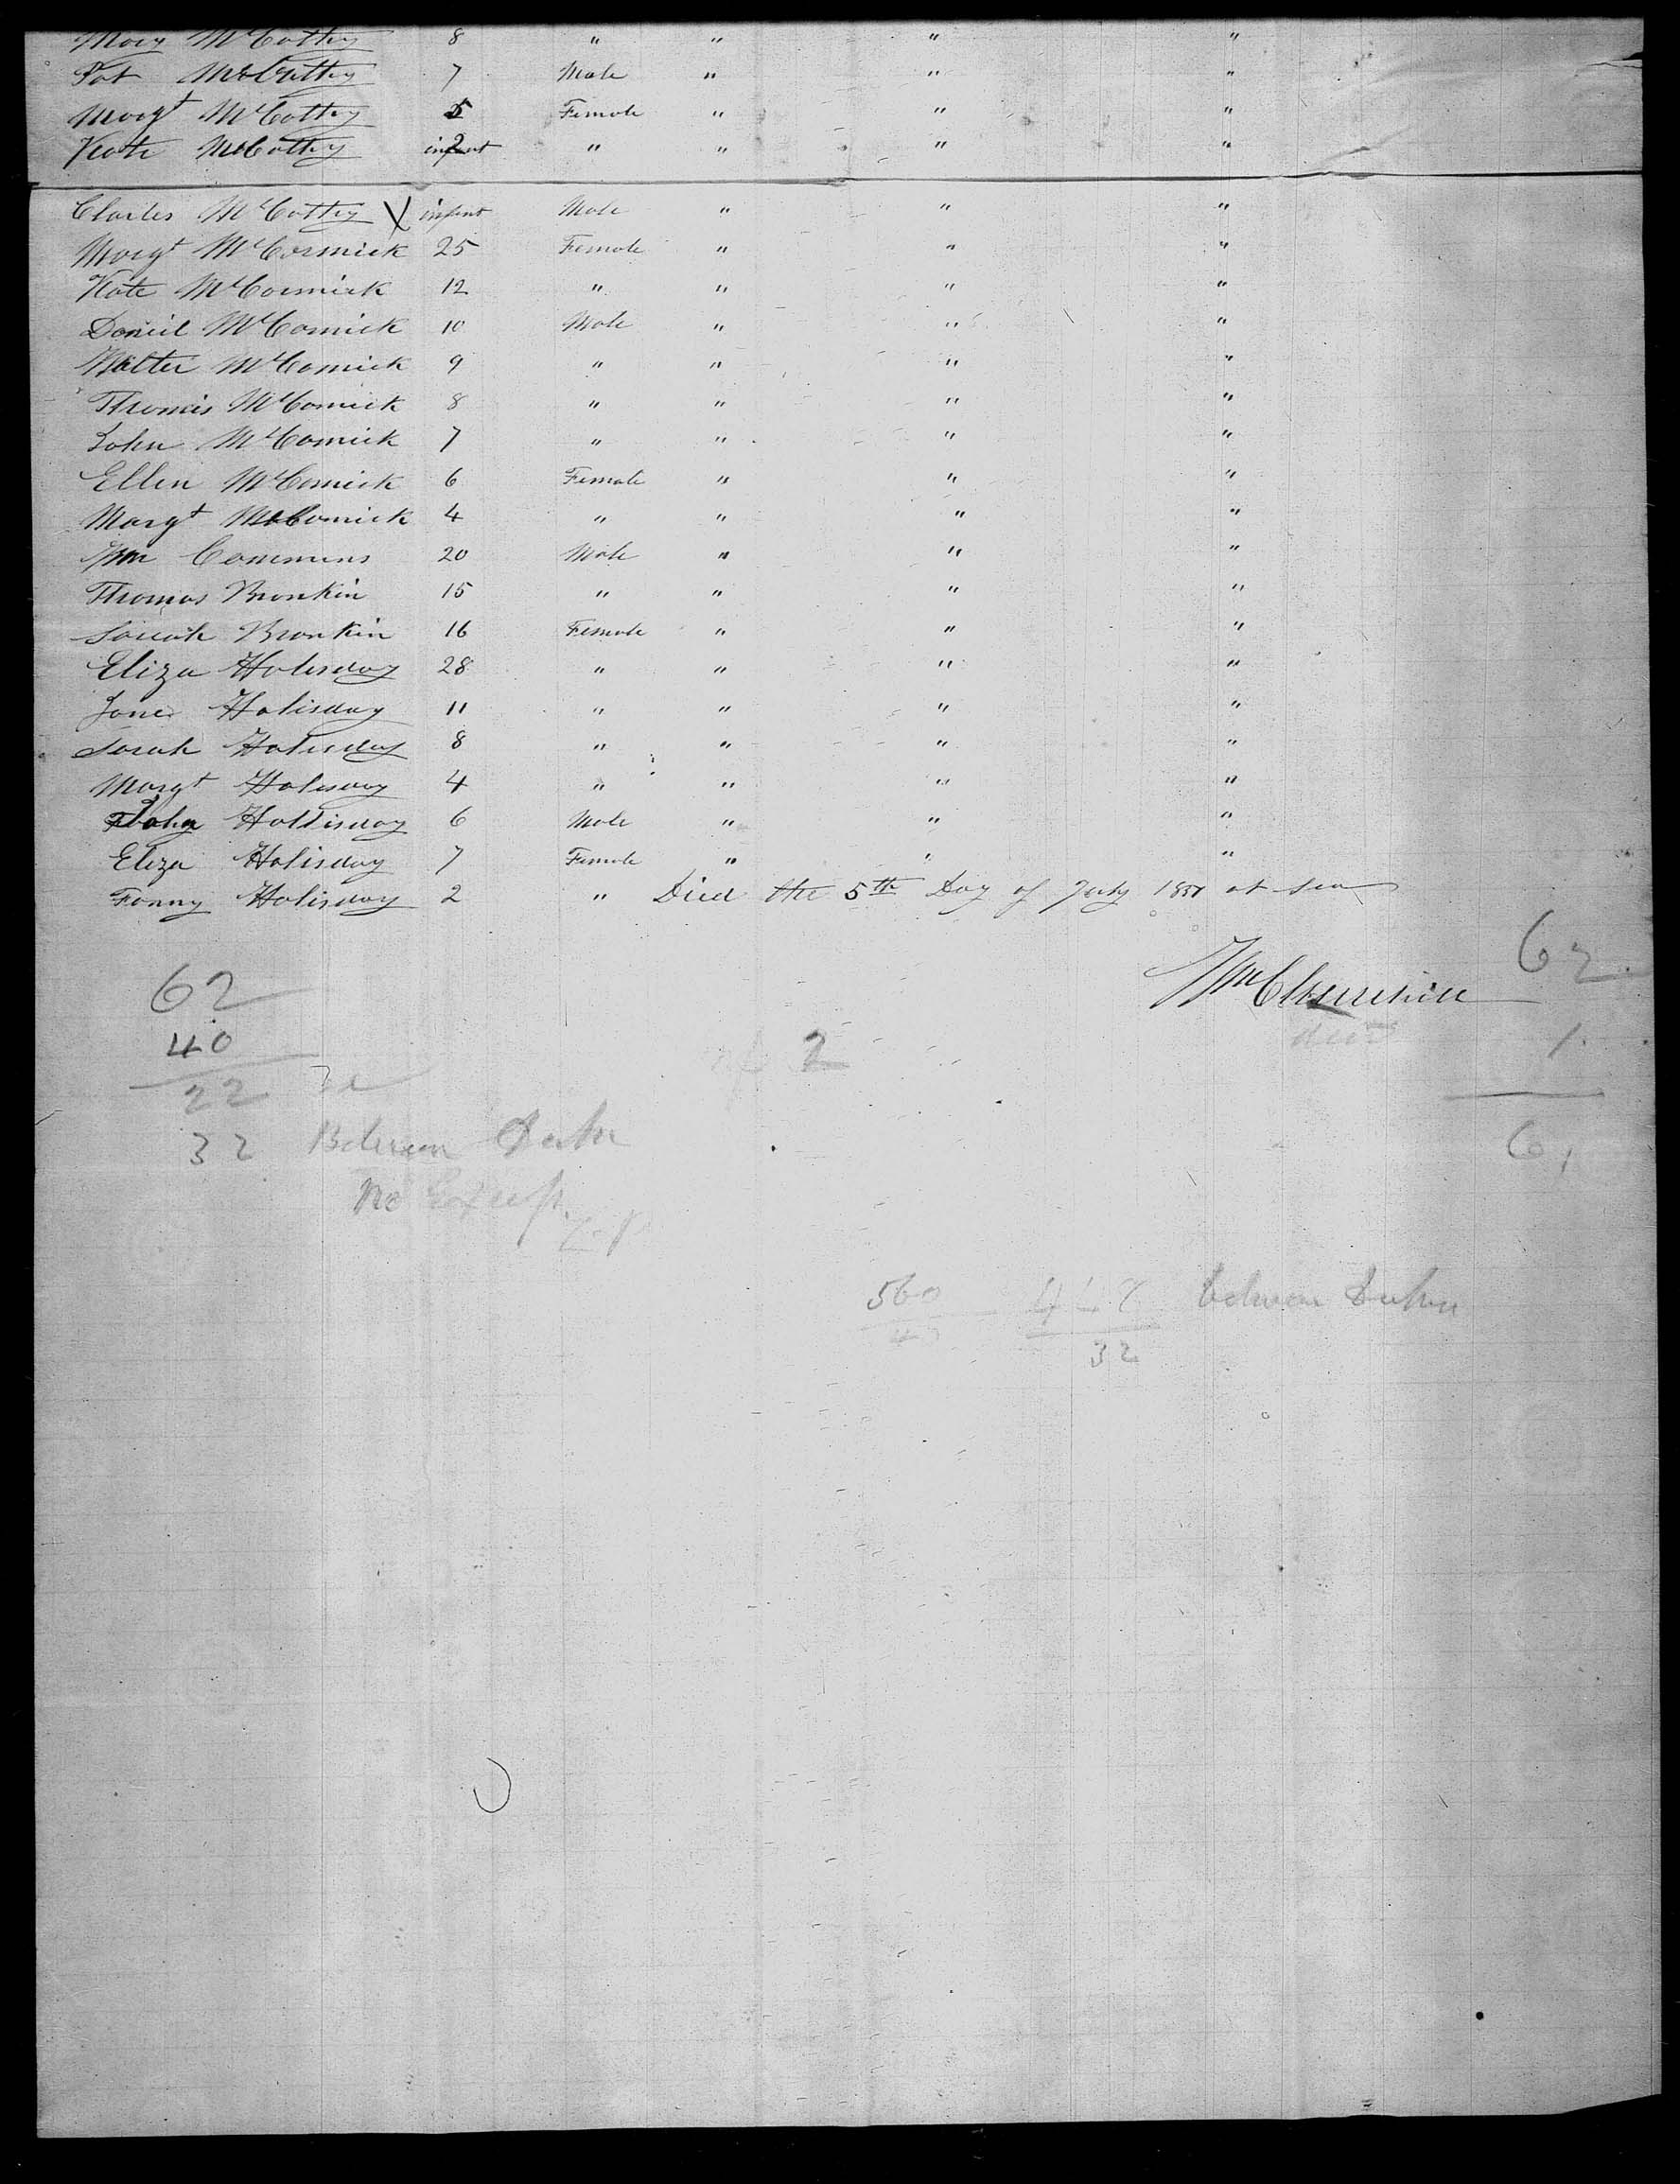 Mary McCathy 8 " " " "
Pat McCathy 7 Male " " "
Margt McCathy 5 Female " " "
Kate McCathy infant " " " "
Charles McCathy X infant Male " " "
Margt McCormick 25 Female " " "
Kate McCormick 12 " " " "
Daniel McComick 10 Male " " "
Walter McComick 9 " " " "
Thomas McComick 8 " " " "
John McComick 7 " " " "
Ellen McComick 6 Female " " "
Margt McComick 4 " " " "
Wm Commins 20 Male " " "
Thomas Brankin 15 " " " "
Sarah Brankin 16 Female " " "
Eliza Holisday 28 " " " "
Jane Holisday 11 " " " "
Sarah Holisday 8 " " " "
Margt Holisday 4 " " " "
John Hollisday 6 Male " " "
Eliza Holisday 7 Female " " "
Fanny Holisday 2 " Died the 5th Day of July 1851 at sea
62 62
Wm
40 1
2
22
61
32 Between Decks
No
560 448 between Decks
40 32